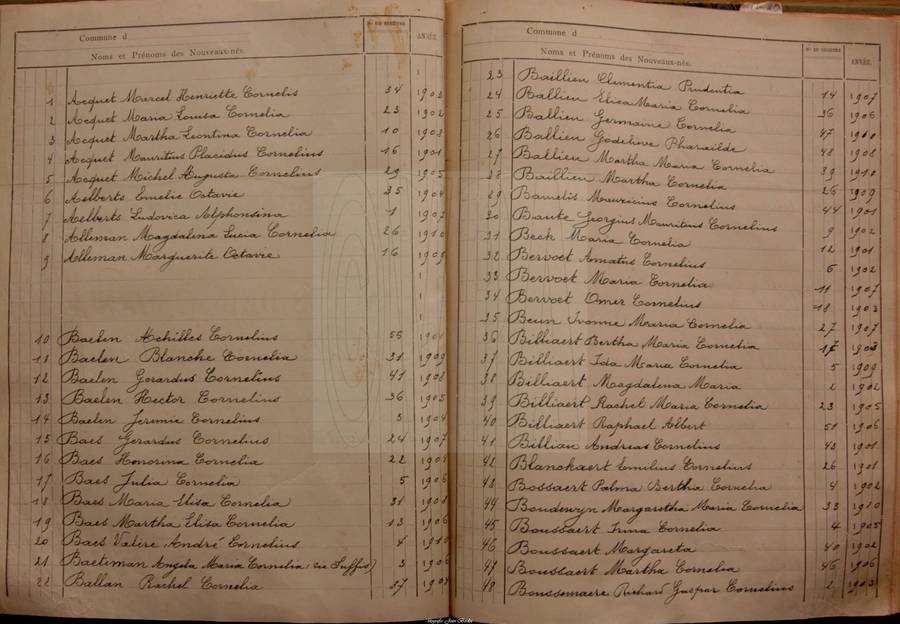 Commune d
Noms et Prénoms des Nouveaux-nés.
No DU REGISTRE
ANNÉE.
1 Acquet Marcel Henriette Cornelis 34 1903
2 Acquet Maria Louisa Cornelia 23 1902
3 Acquet Martha Leontina Cornelia 10 1903
4 Acquet Mauritius Placidus Cornelius 16 1901
5 Acquet Michel Augusta Cornelius 29 1905
6 Aelberts Emelie Octavie 35 1904
7 Aelberts Ludovica Alphonsina 1 1907
8 Alleman Magdalena Lucia Cornelia 26 1910
9 Alleman Marguerite Octavie 16 1909
10 Baelen Achilles Cornelius 55 1901
11 Baelen Blanche Cornelia 31 1909
12 Baelen Gerardus Cornelius 41 1908
13 Baelen Hector Cornelius 36 1905
14 Baelen Jeremie Cornelius 3 1904
15 Baes Gerardus Cornelius 24 1907
16 Baes Honorina Cornelia 22 1901
17 Baes Julia Cornelia 5 1906
18 Baes Maria Elisa Cornelia 31 1908
19 Baes Martha Elisa Cornelia 13 1906
20 Baes Valère André Cornelius 4 1910
21 Baetiman Angela Maria Cornelia (vie Suffis) 3 1906
22 Ballan Rachel Cornelia 37 1904
Commune d
Noms et Prénoms des Nouveaux-nés.
No DU REGISTRE
ANNÉE.
23 Baillieu Clementia Prudentia 14 1907
24 Ballieu Elisa Maria Cornelia 36 1906
25 Ballieu Germaine Cornelia 47 1910
26 Ballieu Godelieve Pharailde 48 1908
27 Ballieu Martha Maria Cornelia 39 1910
28 Baillieu Martha Cornelia 26 1909
29 Bamelis Mauricius Cornelius 44 1901
30 Baute Georgius Mauritius Cornelius 9 1902
31 Beck Maria Cornelia 12 1901
32 Bervoet Amatus Cornelius 6 1902
33 Bervoet Maria Cornelia 11 1907
34 Bervoet Omer Cornelius 18 1903
35 Beun Ivonne Maria Cornelia 27 1907
36 Billiaert Bertha Maria Cornelia 17 1903
37 Billiaert Ida Maria Cornelia 5 1909
38 Billiaert Magdalena Maria 2 1902
39 Billiaert Rachel Maria Cornelia 23 1905
40 Billiaert Raphael Albert 51 1906
41 Billiau Andreas Cornelius 43 1901
42 Blanckaert Emilius Cornelius 26 1901
43 Bossaert Palma Berthia Cornelia 4 1902
44 Boudewyn Margaretha Maria Cornelia 33 1910
45 Boussaert Irma Cornelia 4 1905
46 Boussaert Margareta 40 1902
47 Boussaert Martha Cornelia 46 1906
48 Boussemaere Richard Gaspar Cornelius 2 1903